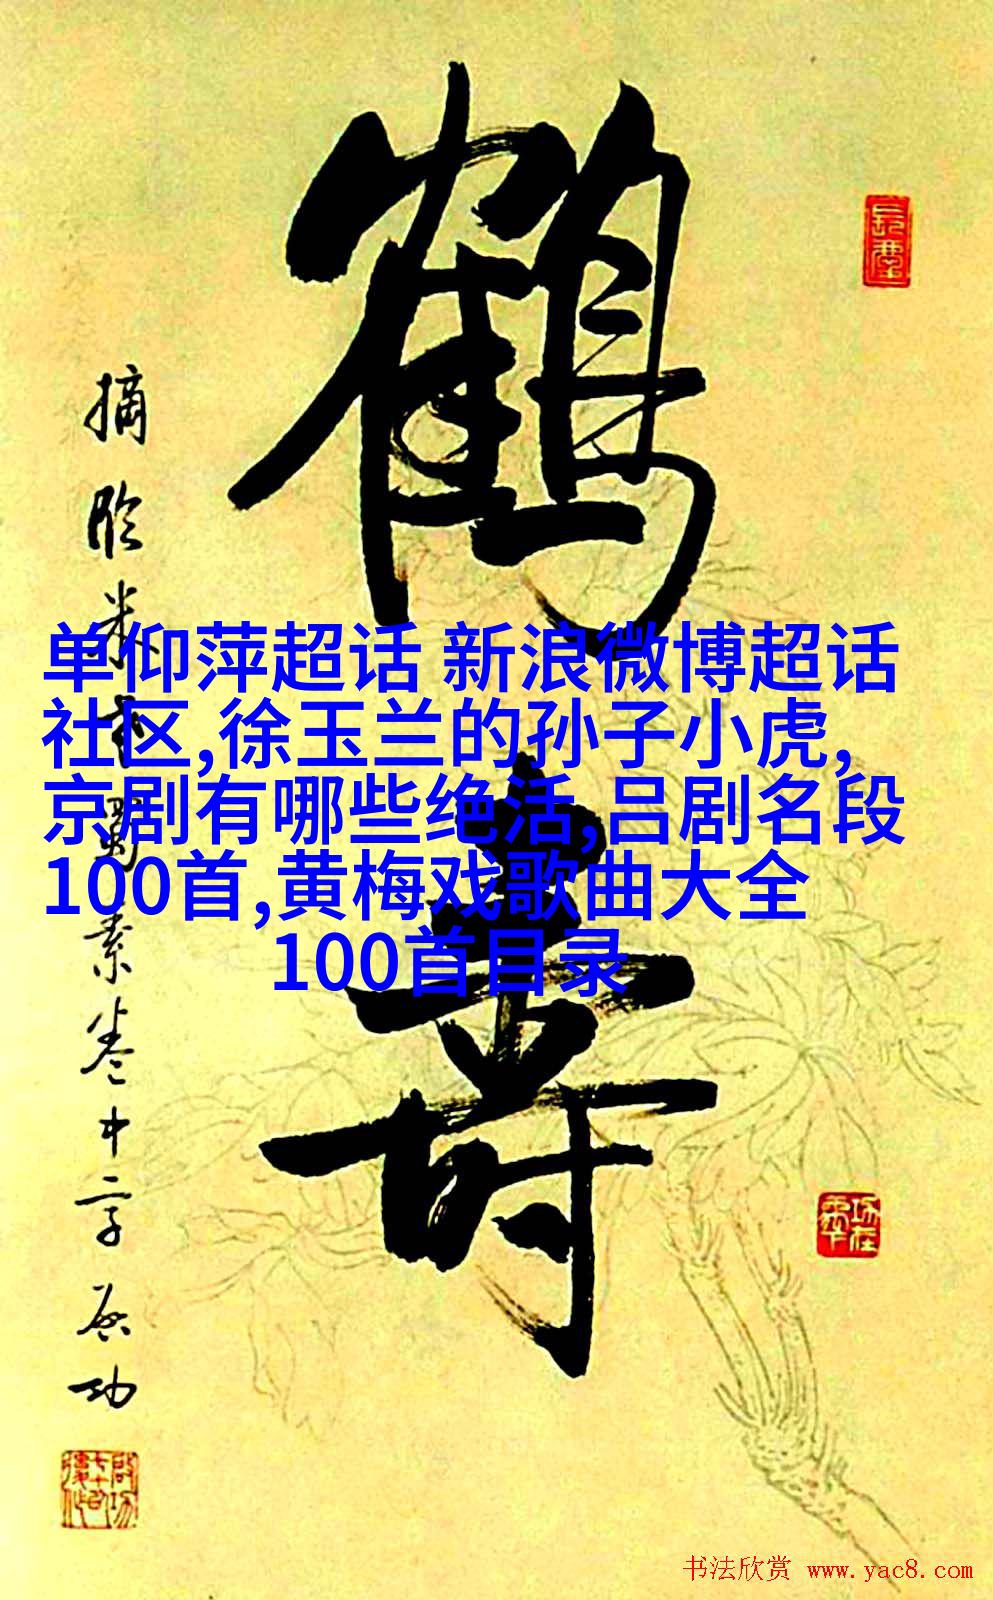 鶴
壽
摘臨米芾蜀素卷中字启功
单仰萍超话 新浪微博超话
社区,徐玉兰的孙子小虎,
京剧有哪些绝活,吕剧名段
100首,黄梅戏歌曲大全
100首目录
书法欣赏 www.yac8.com